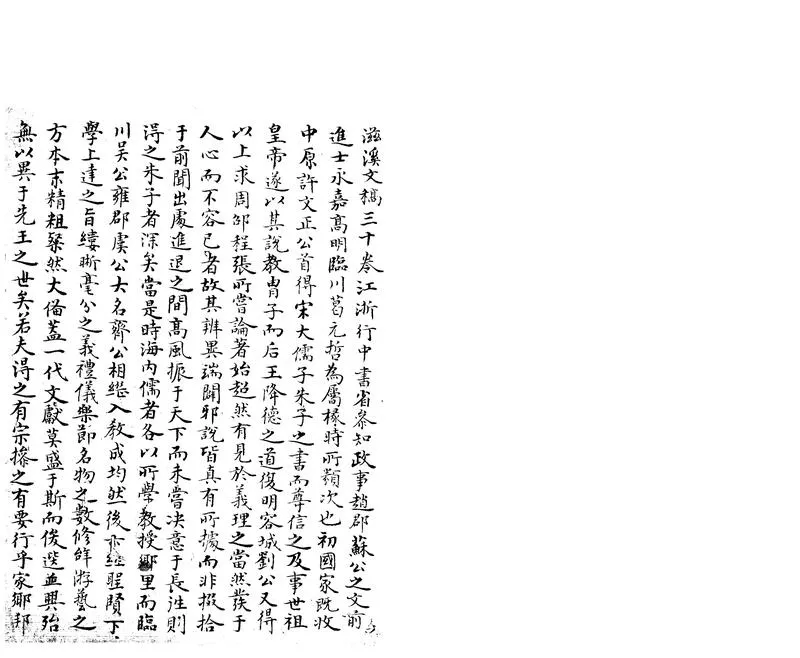 滋溪文稿三十卷江浙行中書省叅知政事趙郡蘇公之文前
進士永嘉高明臨川葛元哲為屬掾時所類次也初國家既收
中原許文正公首得宋大儒子朱子之書而尊信之及事世祖
皇帝遂以其說教胄子而后王降德之道復明容城劉公又得
以上求周邵程張所嘗論著始超然有見於義理之當然發于
人心而不容已者故其辨異端闢邪說皆真有所據而非掇拾
于前聞出處進退之間高風振于天下而未嘗决意于長往則
得之朱子者深矣當是時海内儒者各以所學教授鄉里而臨
川吴公雍郡虞公大名齊公相繼入教成均然後六經聖賢下
學上達之旨縷晰毫分之義禮儀樂節名物之數修辭游藝之
方本末精粗粲然大備蓋一代文獻莫盛于斯而俊選並興殆
無以異于先王之世矣若夫得之有宗操之有要行乎家鄉邦